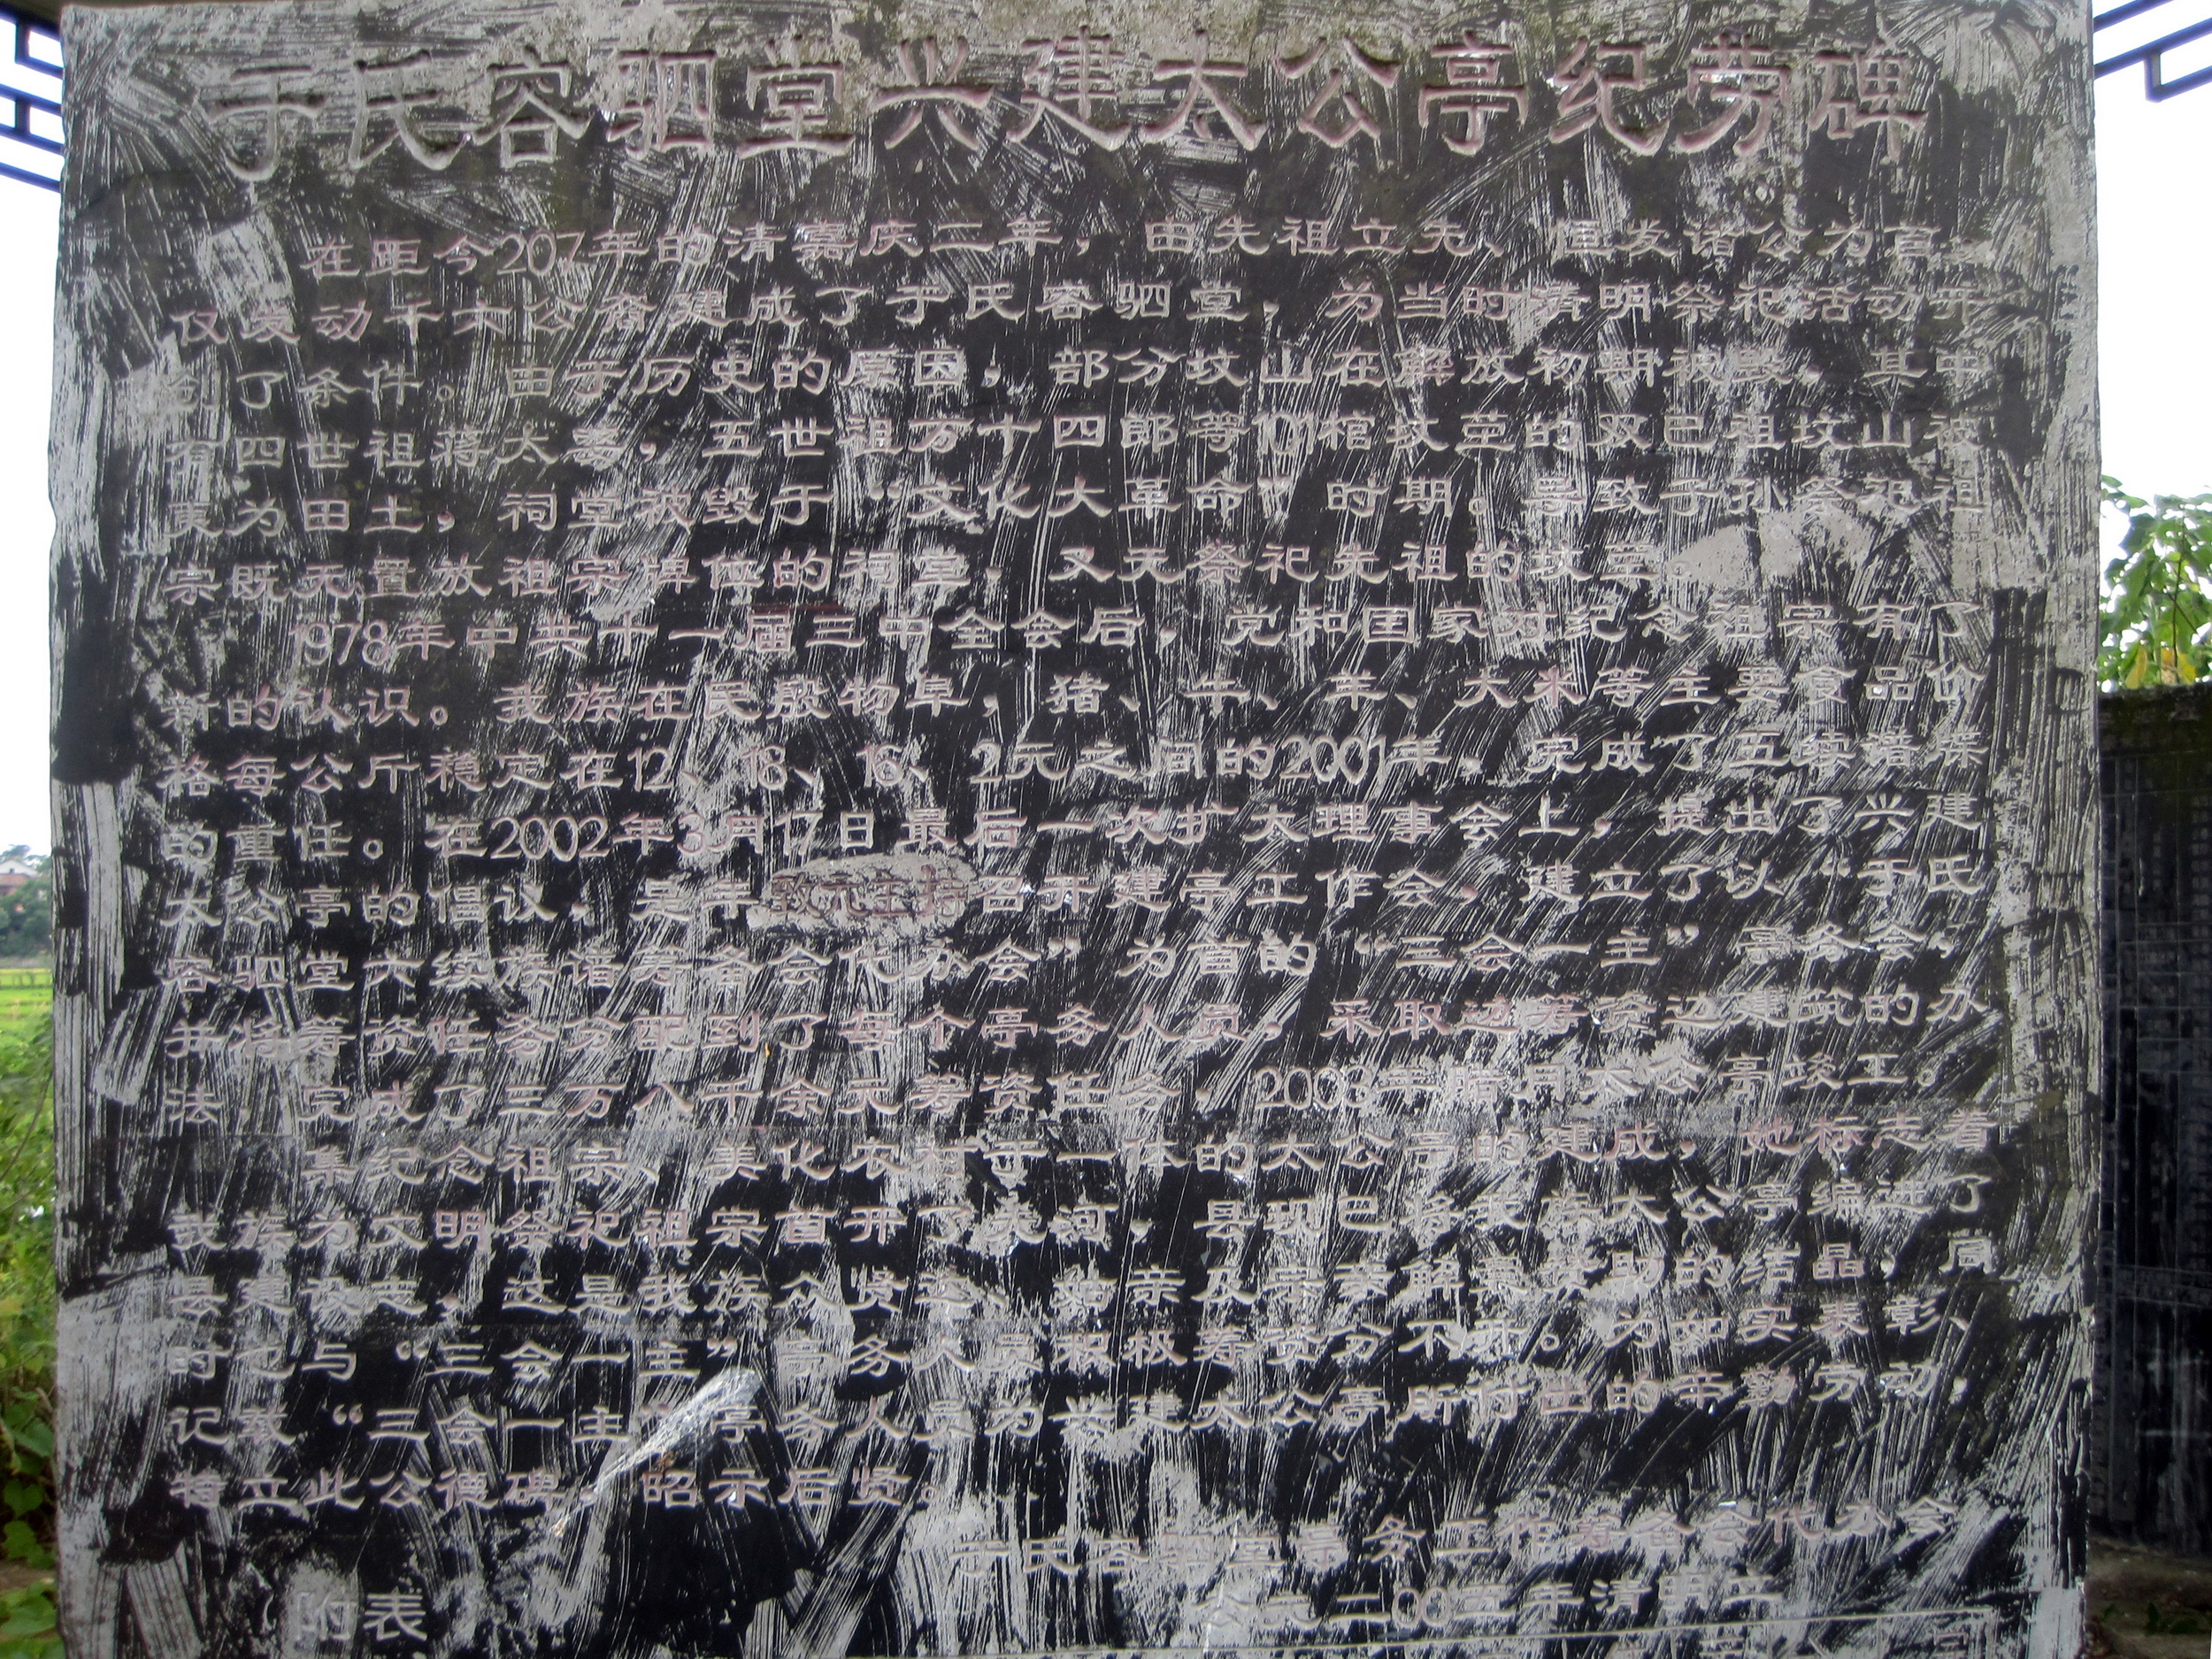 于氏容驷堂兴建太公亭纪劳碑
在距今207年的清嘉庆二年，由先祖立无、匡发诸公为首
仅发动千六公裔建成了于氏容驷堂，为当时清明祭祀活动开
创了条件。由于历史的原因，部分坟山在解放初期被毁、其中
有四世祖蒋太婆，五世祖万十四郎等101棺坟茔的双巴祖坟山被
夷为田土，祠堂被毁于“文化大革命”时期。导致子孙会祀祖
宗既无置放祖宗牌位的祠堂，又无祭祀先祖的坟茔。
1978年中共十一届三中全会后，党和国家对纪念祖宗有了
新的认识。我族在民殷物阜，猪、牛、羊、大米等主要食品价
格每公斤稳定在12、18、16、2元之间的2001年，完成了五续谱牒
的重任。在2002年3月17日最后一次扩大理事会上，提出了兴建
太公亭的倡议，是年致元主持召开建亭工作会，建立了以“于氏
容驷堂六续族谱筹备会代办会”为首的“三会一主”亭务会，
并将筹资任务分配到了每个亭务人员。采取边筹资边建筑的办
法，完成了三万八千余元筹资任务，2003年腊月太公亭竣工。
集纪念祖宗、美化农村于一体的太公亭的建成，她标志着
我族为文明祭祀祖宗首开了先河，县现已将我族太公亭编进了
县建 ，这是我族众贤达、 亲及宗亲解囊赞助的结晶，同
时也与“三会一主”亭务人员积极筹资分不开。为如实表彰、
记载“三会一主”亭务人员为兴建太公亭所付出的辛勤劳动，
特立此公德碑，昭示后贤。
于氏容驷堂亭务工作筹备会代办会
公元二00五年清明立
附表